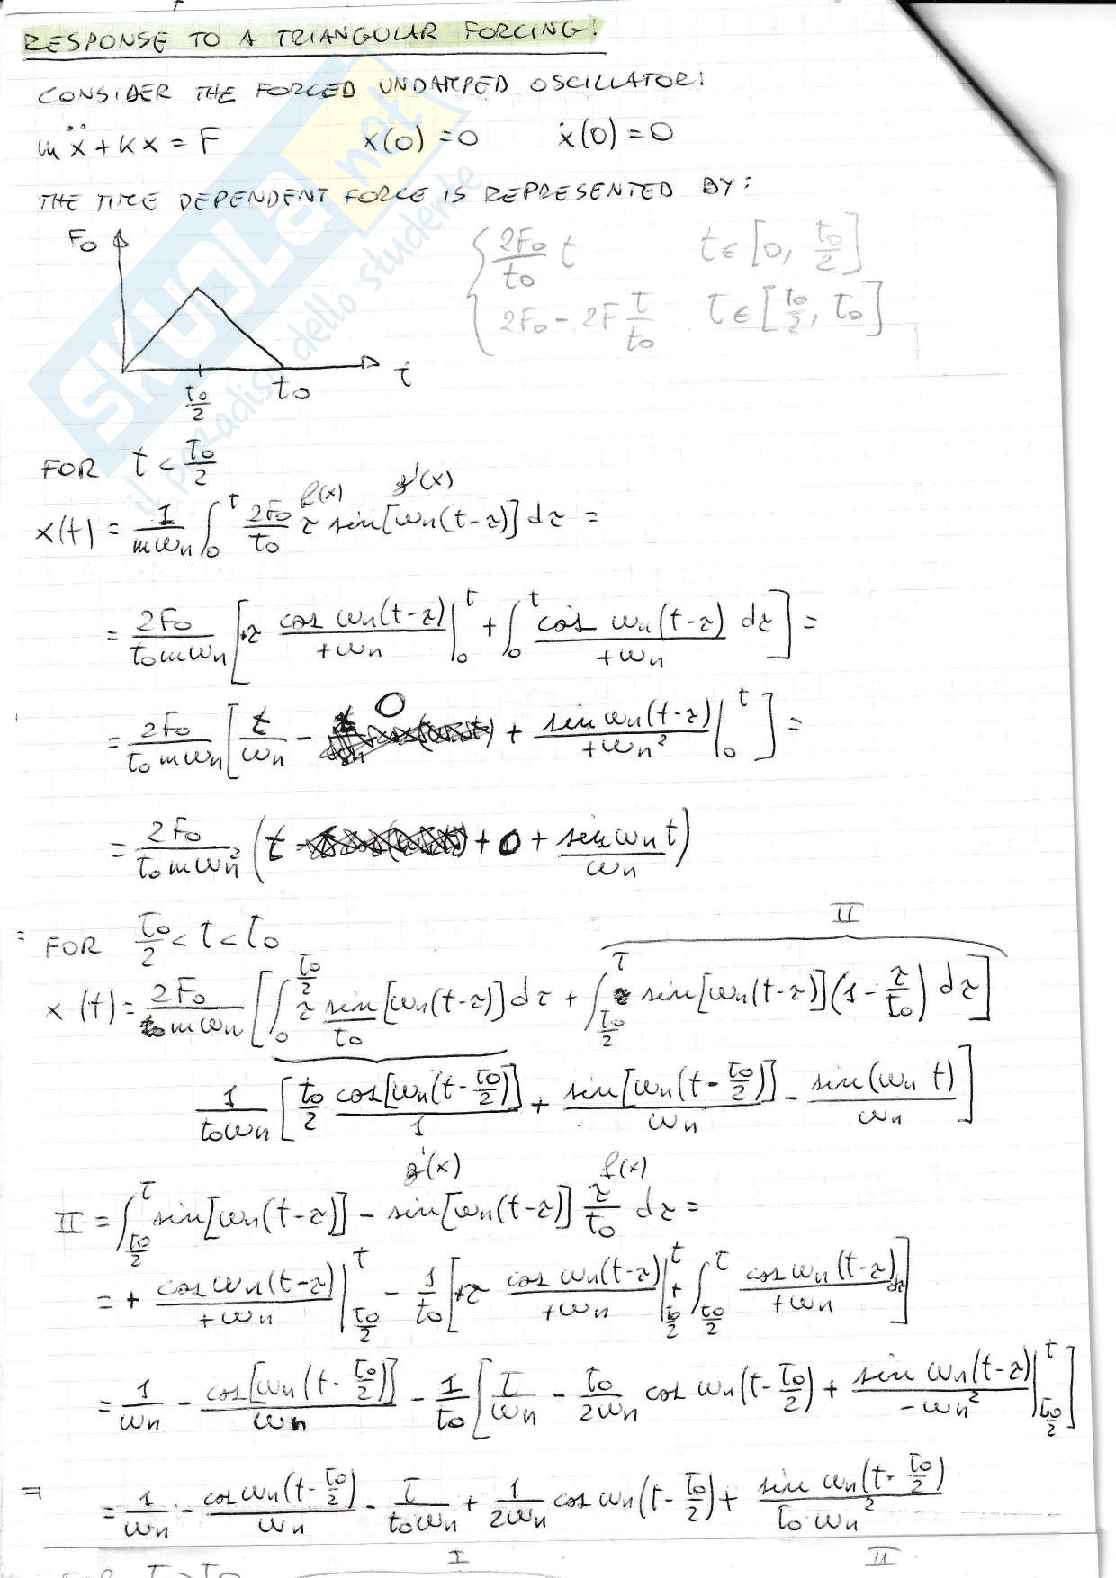 RESPONSE TO A TRIANGULAR FORCING!
CONSIDER THE FORCED UNDAMPED OSCILLATOR:
mẍ + kx = F x(0) = 0 ẋ(0) = 0
THE TIME DEPENDENT FORCE IS REPRESENTED BY:
F₀
2F₀/t₀ t t ∈ [0, t₀/2]
2F₀ - 2F t/t₀ t ∈ [t₀/2, t₀]
t₀/2 t₀ t
SKUOLA.net
il paradiso dello studente
FOR t < t₀/2
f(x) g'(x)
x(t) = 1/(mωn) ∫₀^t 2F₀/t₀ τ sin[ωn(t-τ)] dτ =
= 2F₀/(t₀mωn) [+τ cos ωn(t-τ)/(+ωn) |₀^t + ∫₀^t cos ωn(t-τ)/(+ωn) dτ] =
= 2F₀/(t₀mωn) [t/ωn - 0 + sin ωn(t-τ)/(+ωn²) |₀^t] =
= 2F₀/(t₀mωn²) (t + 0 + sin ωn t/ωn)
= FOR t₀/2 < t < t₀
II
x(t) = 2F₀/(mωn) [∫₀^(t₀/2) τ sin/t₀ [ωn(t-τ)] dτ + ∫_(t₀/2)^t sin[ωn(t-τ)](1 - τ/t₀) dτ]
1/(t₀ωn) [t₀/2 cos[ωn(t-t₀/2)]/1 + sin[ωn(t-t₀/2)]/ωn - sin(ωn t)/ωn]
g'(x) f(x)
II = ∫_(t₀/2)^t sin[ωn(t-τ)] - sin[ωn(t-τ)] τ/t₀ dτ =
= + cos ωn(t-τ)/(+ωn) |_(t₀/2)^t - 1/t₀ [+τ cos ωn(t-τ)/(+ωn) |_(t₀/2)^t + ∫_(t₀/2)^t cos ωn(t-τ)/(+ωn) dτ]
= 1/ωn - cos[ωn(t-t₀/2)]/ωn - 1/t₀ [t/ωn - t₀/(2ωn) cos ωn(t-t₀/2) + sin ωn(t-τ)/(-ωn²) |_(t₀/2)^t]
= = 1/ωn - cos ωn(t-t₀/2)/ωn - t/(t₀ωn) + 1/(2ωn) cos ωn(t-t₀/2) + sin ωn(t-t₀/2)/(t₀ωn²)
I II